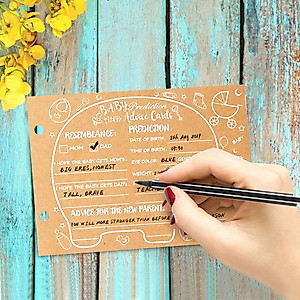 BABY Prediction
AND Advice Cards
RESEMBLANCE:
MOM ✓ DAD
I HOPE THE BABY GETS MOM'S:
BIG EYES, HONEST
I HOPE THE BABY GETS DAD'S:
TALL, BRAVE
PREDICTION:
DATE OF BIRTH:
TIME OF BIRTH: 08:30
EYE COLOR: BLUE
WEIGHT:
ADVICE FOR THE NEW PARENTS
YOU WILL MORE STRONGER THAN BEFORE